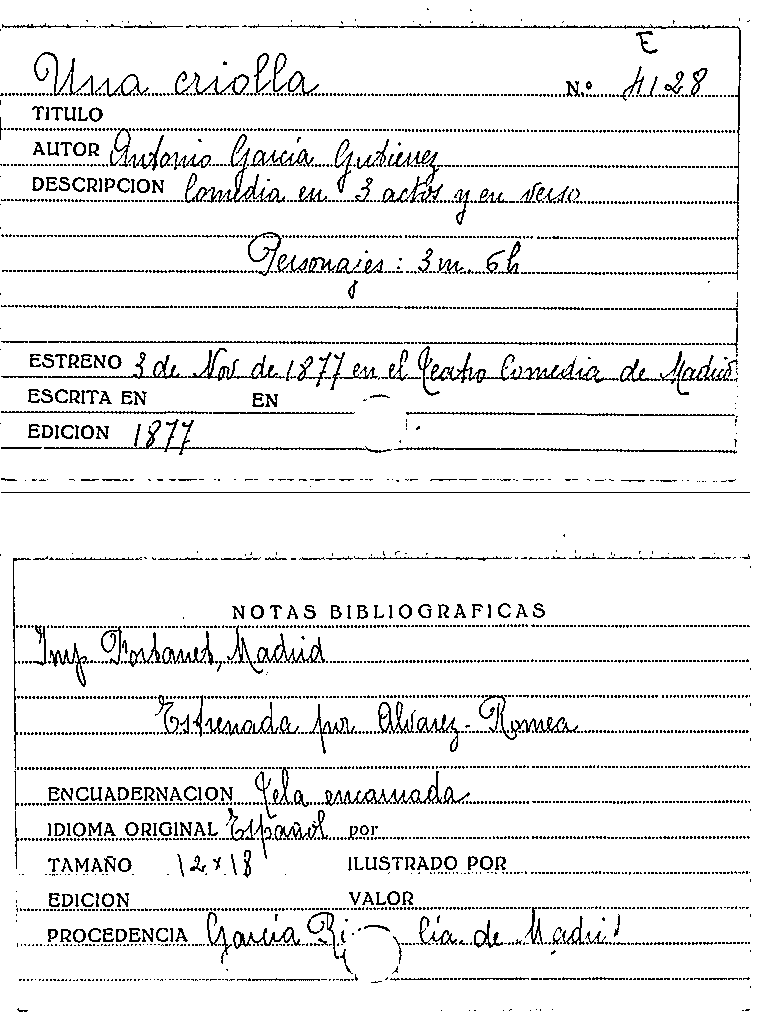 E
Una criolla Nº 4128
TITULO
AUTOR Antonio García Gutiérrez
DESCRIPCION Comedia en 3 actos y en verso
Personajes: 3 m. 6 h
ESTRENO 3 de Nov de 1877 en el Teatro Comedia de Madrid
ESCRITA EN EN
EDICION 1877
NOTAS BIBLIOGRAFICAS
Imp Fortanet, Madrid
Estrenada por Alvarez-Romea
ENCUADERNACION Tela encarnada
IDIOMA ORIGINAL Español por
TAMAÑO 12 x 18 ILUSTRADO POR
EDICION VALOR
PROCEDENCIA García Cía. de Madrid